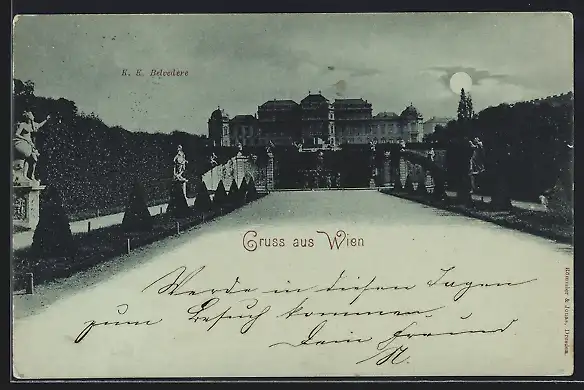 K. K. Belvedere
Gruss aus Wien
Werde in diesen Tagen
zum Besuch kommen.
Dein Freund
Römmler & Jonas, Dresden.